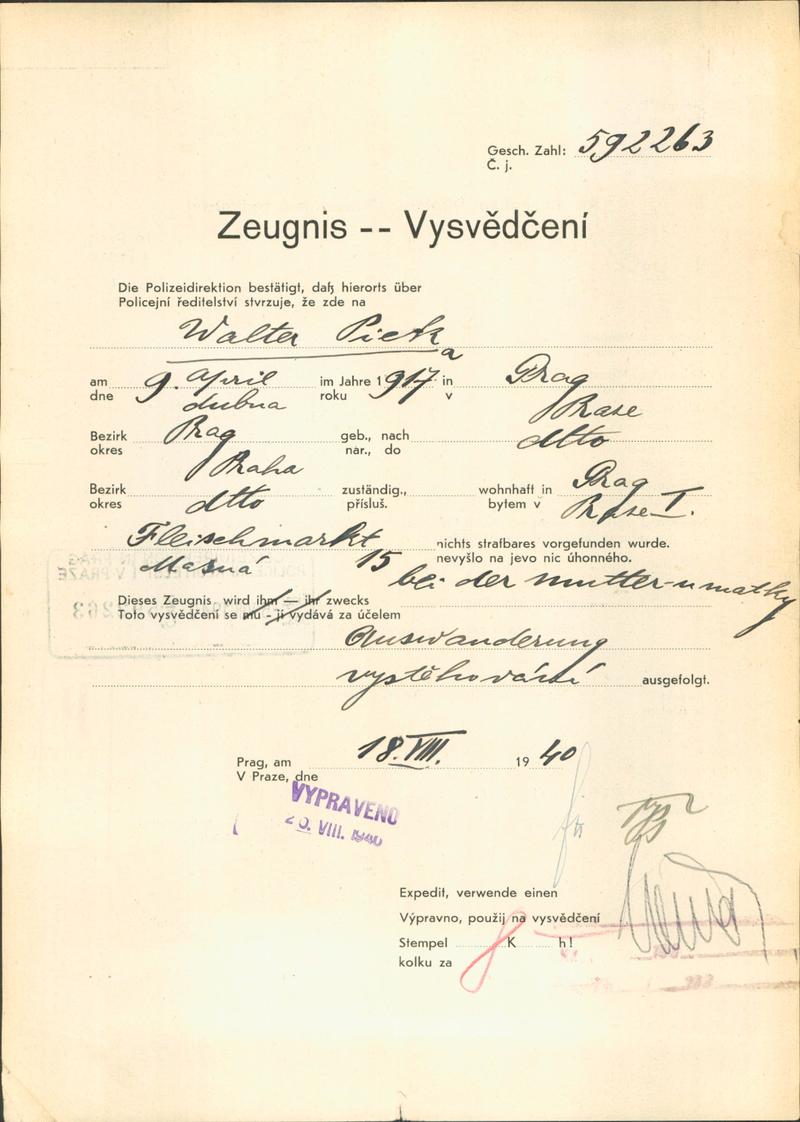 Gesch. Zahl: 592263
Č. j.
Zeugnis -- Vysvědčení
Die Polizeidirektion bestätigt, daß hierorts über
Policejní ředitelství stvrzuje, že zde na
Walter Pick
a
am 9. April im Jahre 1917 in Prag
dne dubna roku v Praze
Bezirk Prag geb., nach dtto
okres Praha nar., do
Bezirk dtto zuständig., wohnhaft in Prag
okres přísluš. bytem v Praze I.
Fleischmarkt nichts strafbares vorgefunden wurde.
Masná 15 nevyšlo na jevo nic úhonného.
bei der Mutter - u matky
Dieses Zeugnis wird ihm — ihr zwecks
Toto vysvědčení se mu - jí vydává za účelem
Auswanderung
vystěhování ausgefolgt.
Prag, am 18. VIII. 1940
V Praze, dne
VYPRAVENO
20. VIII. 1940
Expedit, verwende einen
Výpravno, použij na vysvědčení
Stempel K h!
kolku za